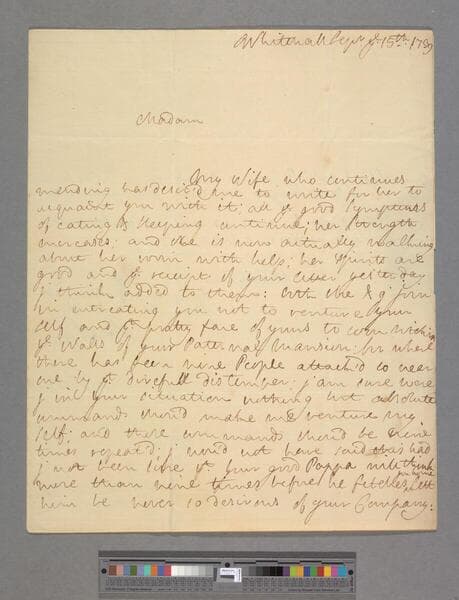 Whitehall Sepr ye 15th 1739
Madam
My Wife who continues
mending has desir'd me to write for her to
acquaint you with it; all ye good Symptoms
of eating & sleeping continue; her strength
increases; and she is now actually walking
about her room with help; her spirits are
good and ye receipt of your Letter yesterday
I think added to them: both she & I join
in intreating you not to venture your
self and pretty face of yours to come within
ye Walls of your Paternal Mansion: for where
there has been nine People attack'd so near
one by yt direfull distemper; I am sure were
I in your situation nothing but absolute
commands should make me venture my
self; and those commands should be nine
times repeated; I would not have said this had
I not been sure yt your good Pappa will think
more than nine times before he fetches
him be never so desirous of your Company: